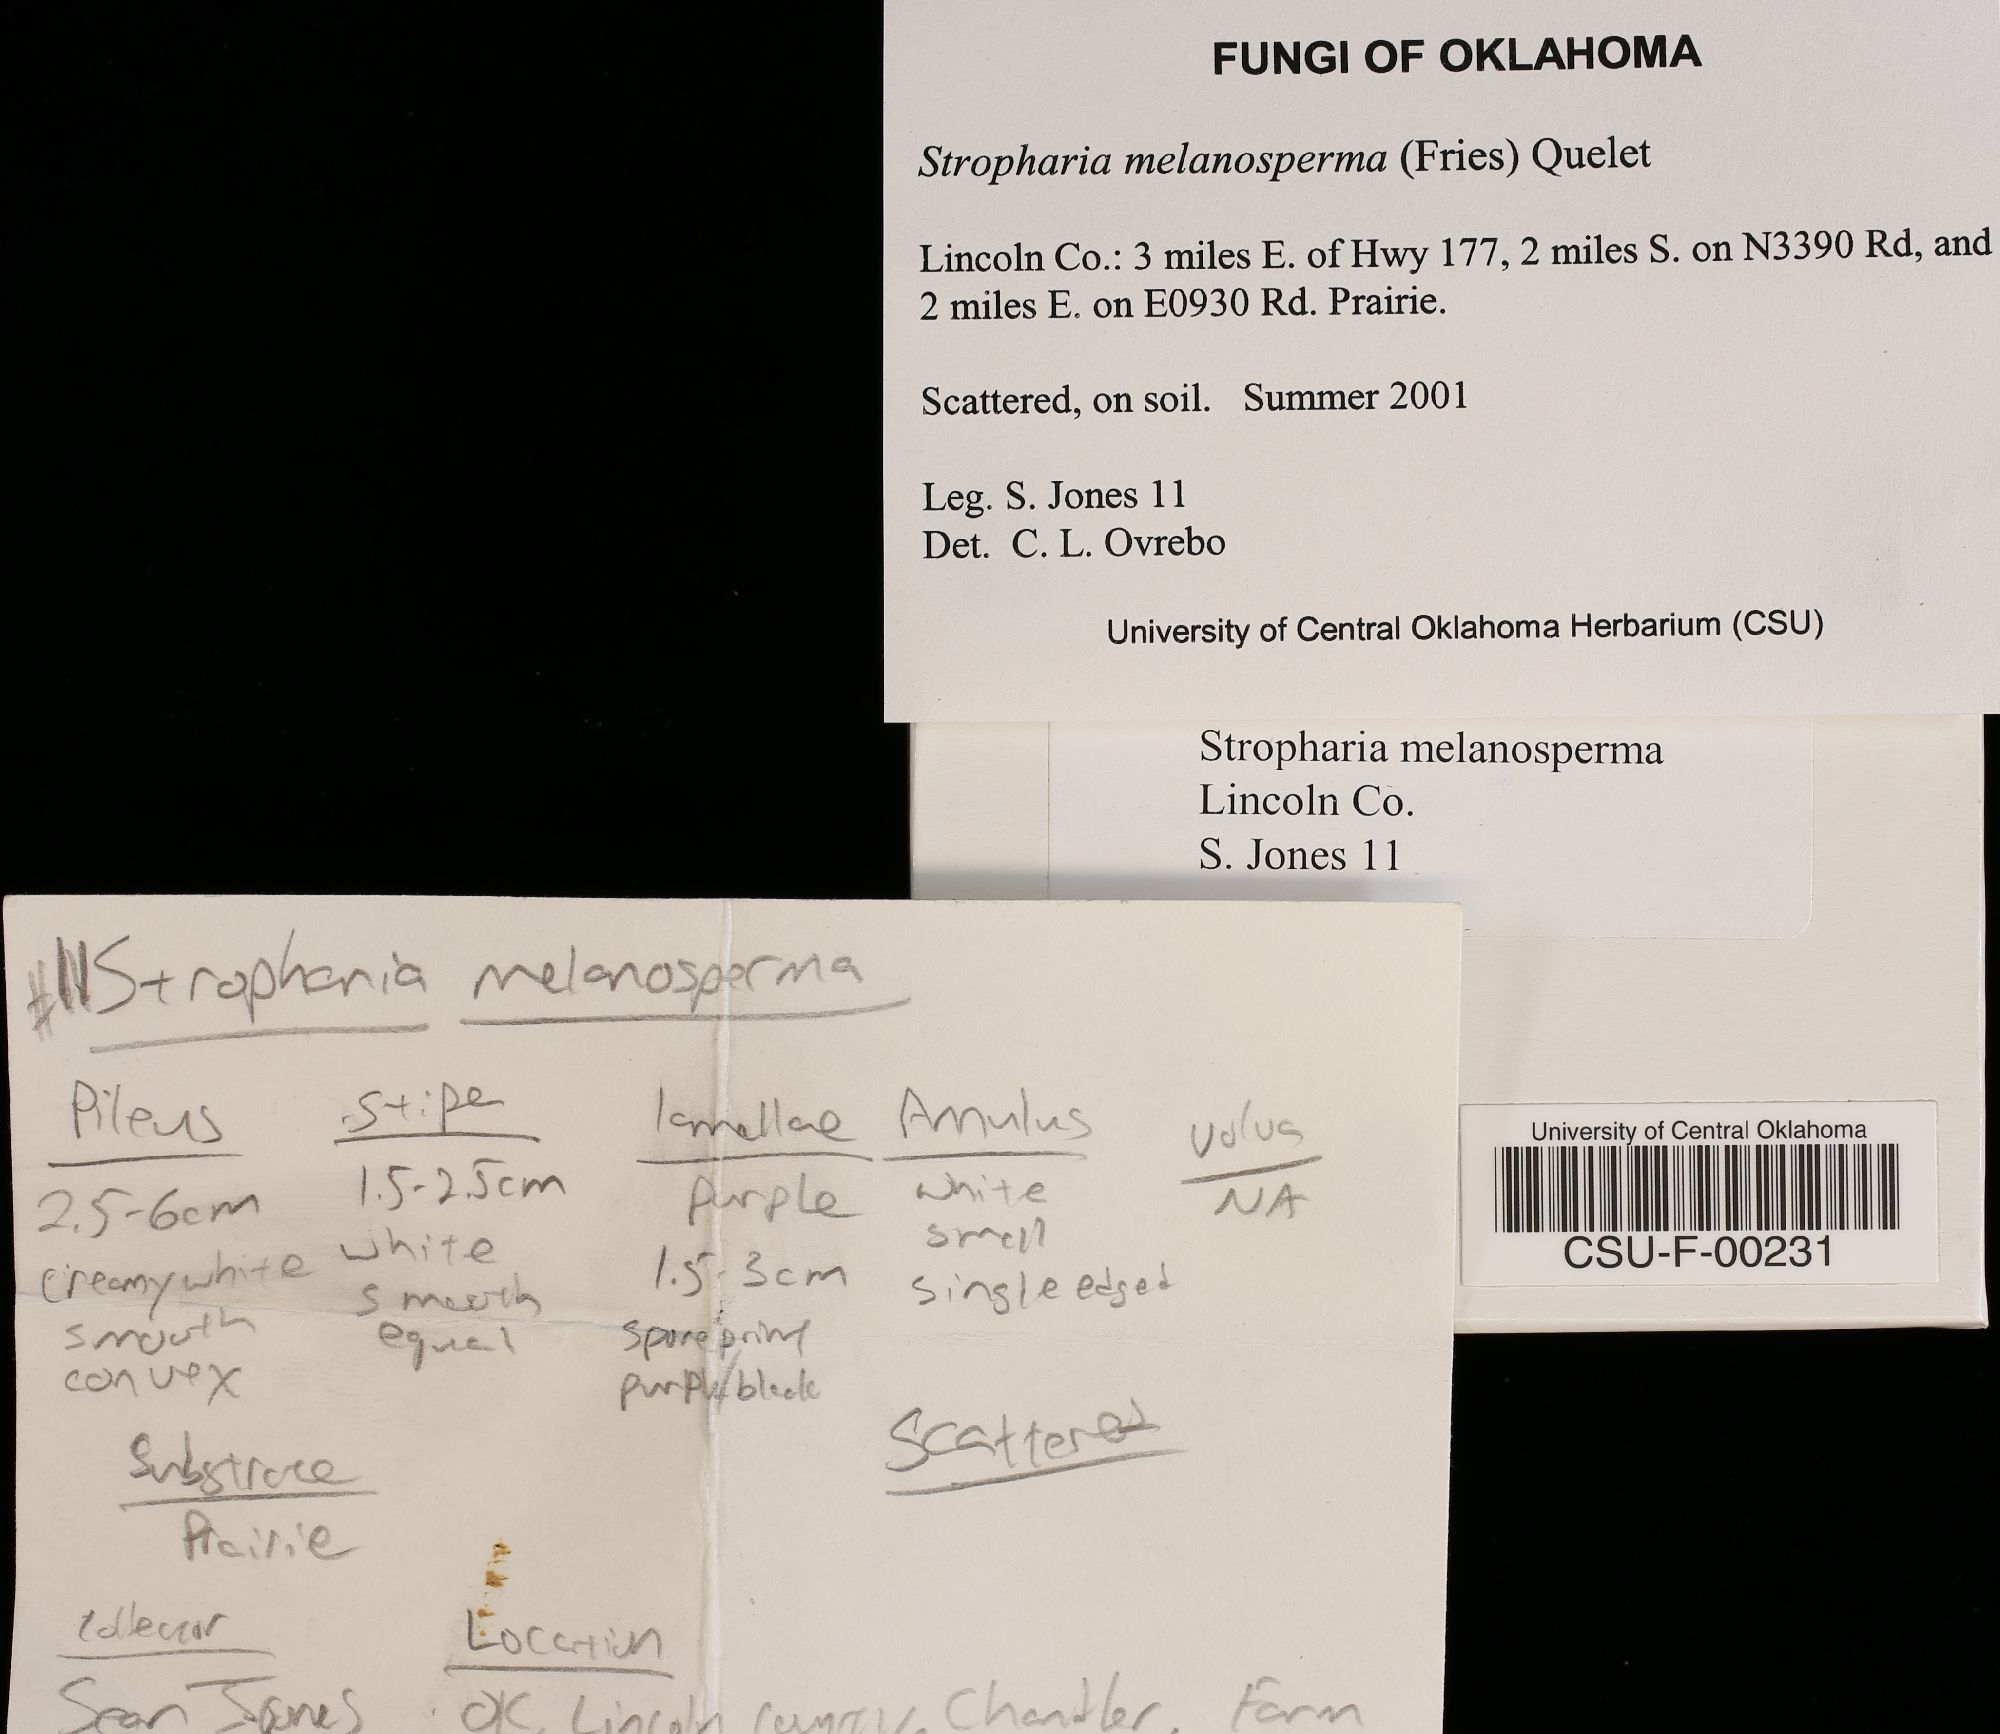 FUNGI OF OKLAHOMA
Stropharia melanosperma (Fries) Quelet
Lincoln Co.: 3 miles E. of Hwy 177, 2 miles S. on N3390 Rd, and
2 miles E. on E0930 Rd. Prairie.
Scattered, on soil. Summer 2001
Leg. S. Jones 11
Det. C. L. Ovrebo
University of Central Oklahoma Herbarium (CSU)
Stropharia melanosperma
Lincoln Co.
S. Jones 11
University of Central Oklahoma
CSU-F-00231
#11 Stropharia melanosperma
Pileus
2.5-6cm
creamy white
smooth
convex
Stipe
1.5-2.5cm
white
smooth
equal
lamellae
purple
1.5-3cm
spore print
purple/black
Annulus
white
small
single edged
volva
NA
Substrate
Prairie
Scattered
Collector
Sean Jones
Location
OK, Lincoln county, Chandler, Farm